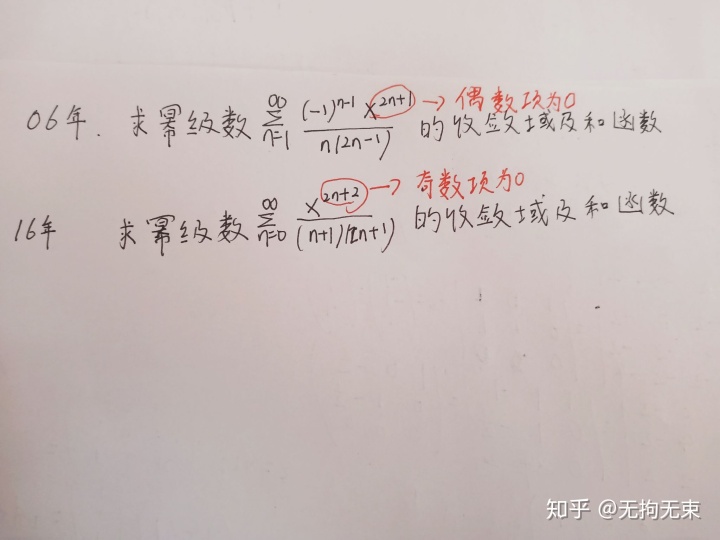 06年. 求幂级数 ∞∑n=1 (-1)^{n-1} x^{2n+1} / n(2n-1) → 偶数项为0 的收敛域及和函数
16年 求幂级数 ∞∑n=0 x^{2n+2} / (n+1)(2n+1) → 奇数项为0 的收敛域及和函数
知乎 @无拘无束